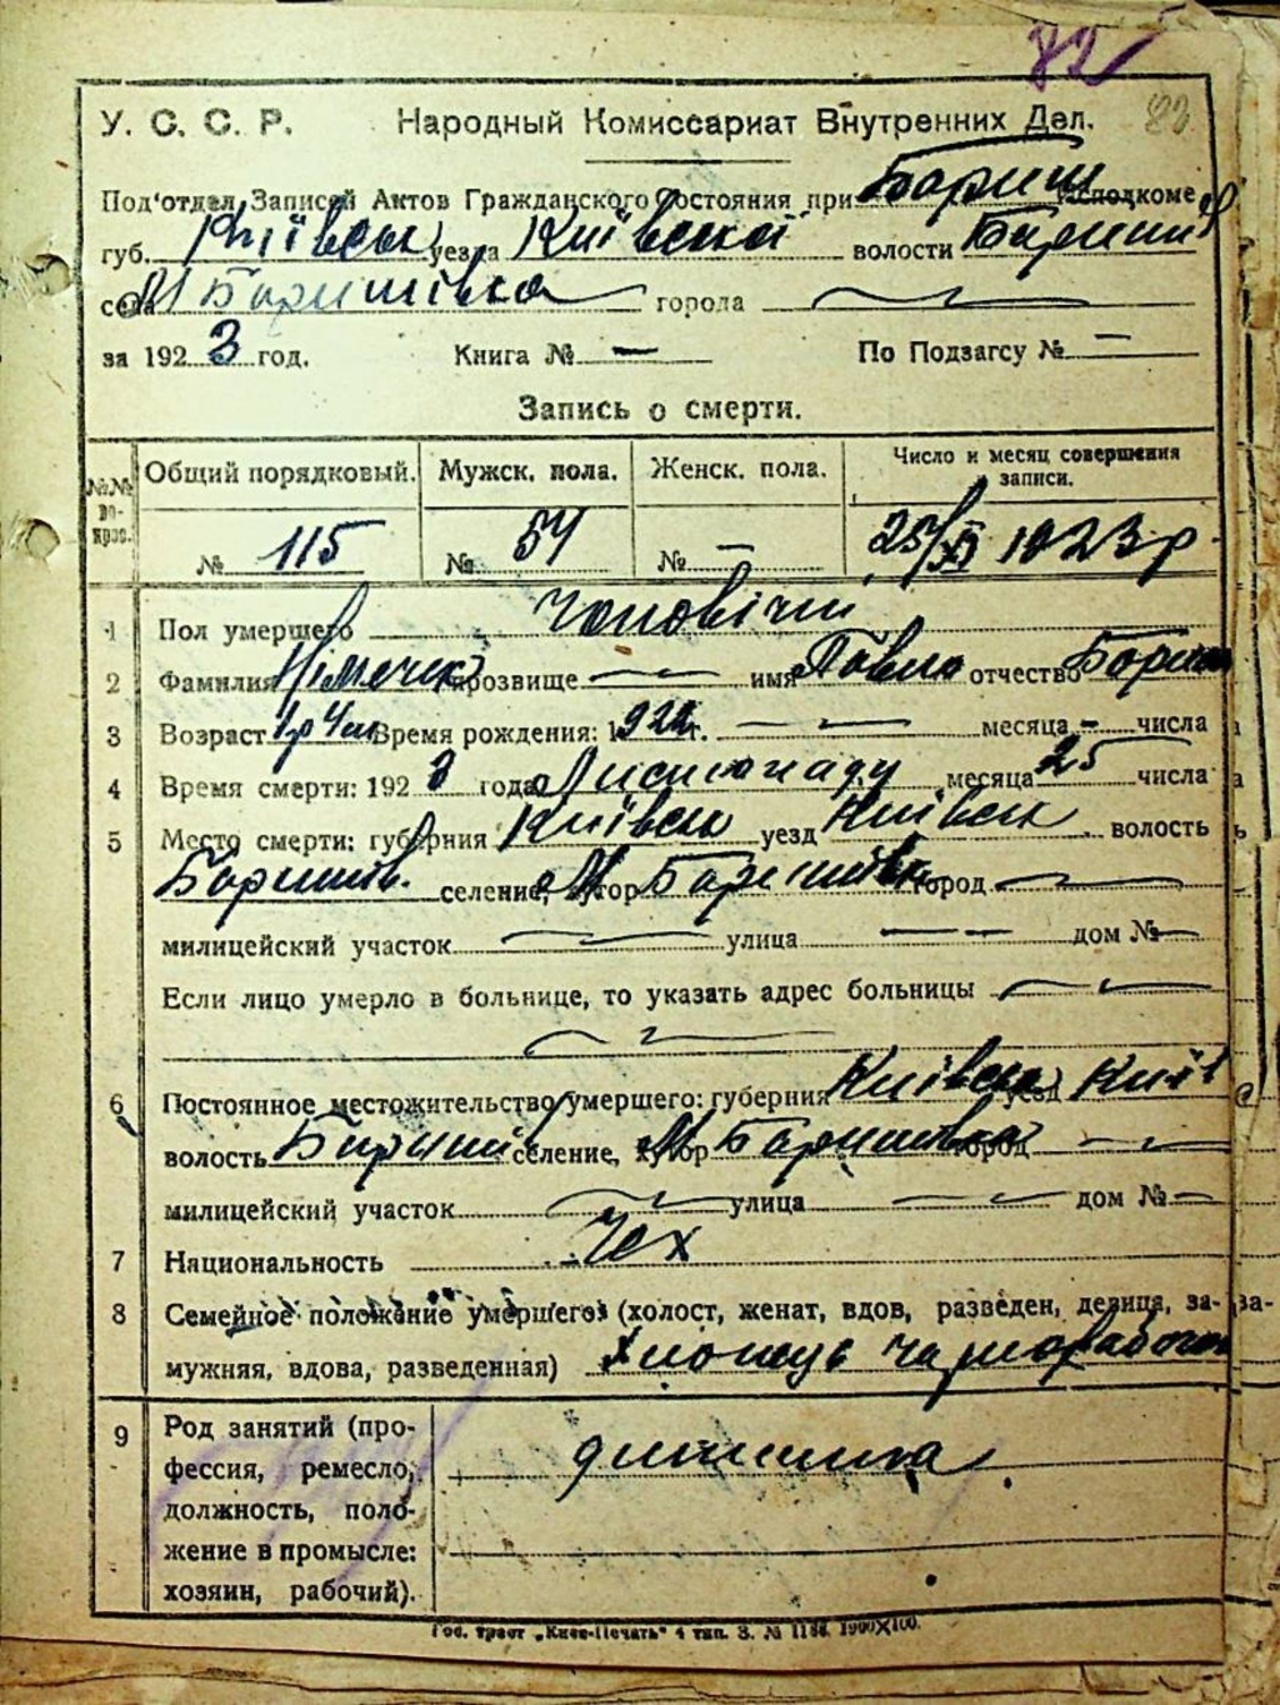 82
У. С. С. Р. Народный Комиссариат Внутренних Дел. 82
Под'отдел Записей Актов Гражданского Состояния при Бориш исполкоме
губ. Київськ уезда Київської волости Бориш
села М Боришівка города —
за 1923 год. Книга № — По Подзагсу № —
Запись о смерти.
№№ вопрос. Общий порядковый. Мужск. пола. Женск. пола. Число и месяц совершения записи.
№ 115 № 54 № — 25/XI 1923 р
1 Пол умершего Чоловічи
2 Фамилия Німечек прозвище — имя Павло отчество Борис
3 Возраст 1 р 4 м Время рождения: 1922 г. — месяца — числа
4 Время смерти: 1923 года Листопаду месяца 25 числа
5 Место смерти: губерния Київськ уезд Київськ волость
Боришів. селение, хутор М Боришівка город —
милицейский участок — улица — дом № —
Если лицо умерло в больнице, то указать адрес больницы —
—
6 Постоянное местожительство умершего: губерния Київськ уезд Київ
волость Бориш селение, хутор М Боришівка город —
милицейский участок — улица — дом № —
7 Национальность Чех
8 Семейное положение умершего (холост, женат, вдов, разведен, девица, за-
мужняя, вдова, разведенная) Хлопець чорнорабочого
9 Род занятий (про-
фессия, ремесло, дитина
должность, поло-
жение в промысле:
хозяин, рабочий).
Гос. трест „Киев-Печать" 4 тип. З. № 1188. 1900X100.